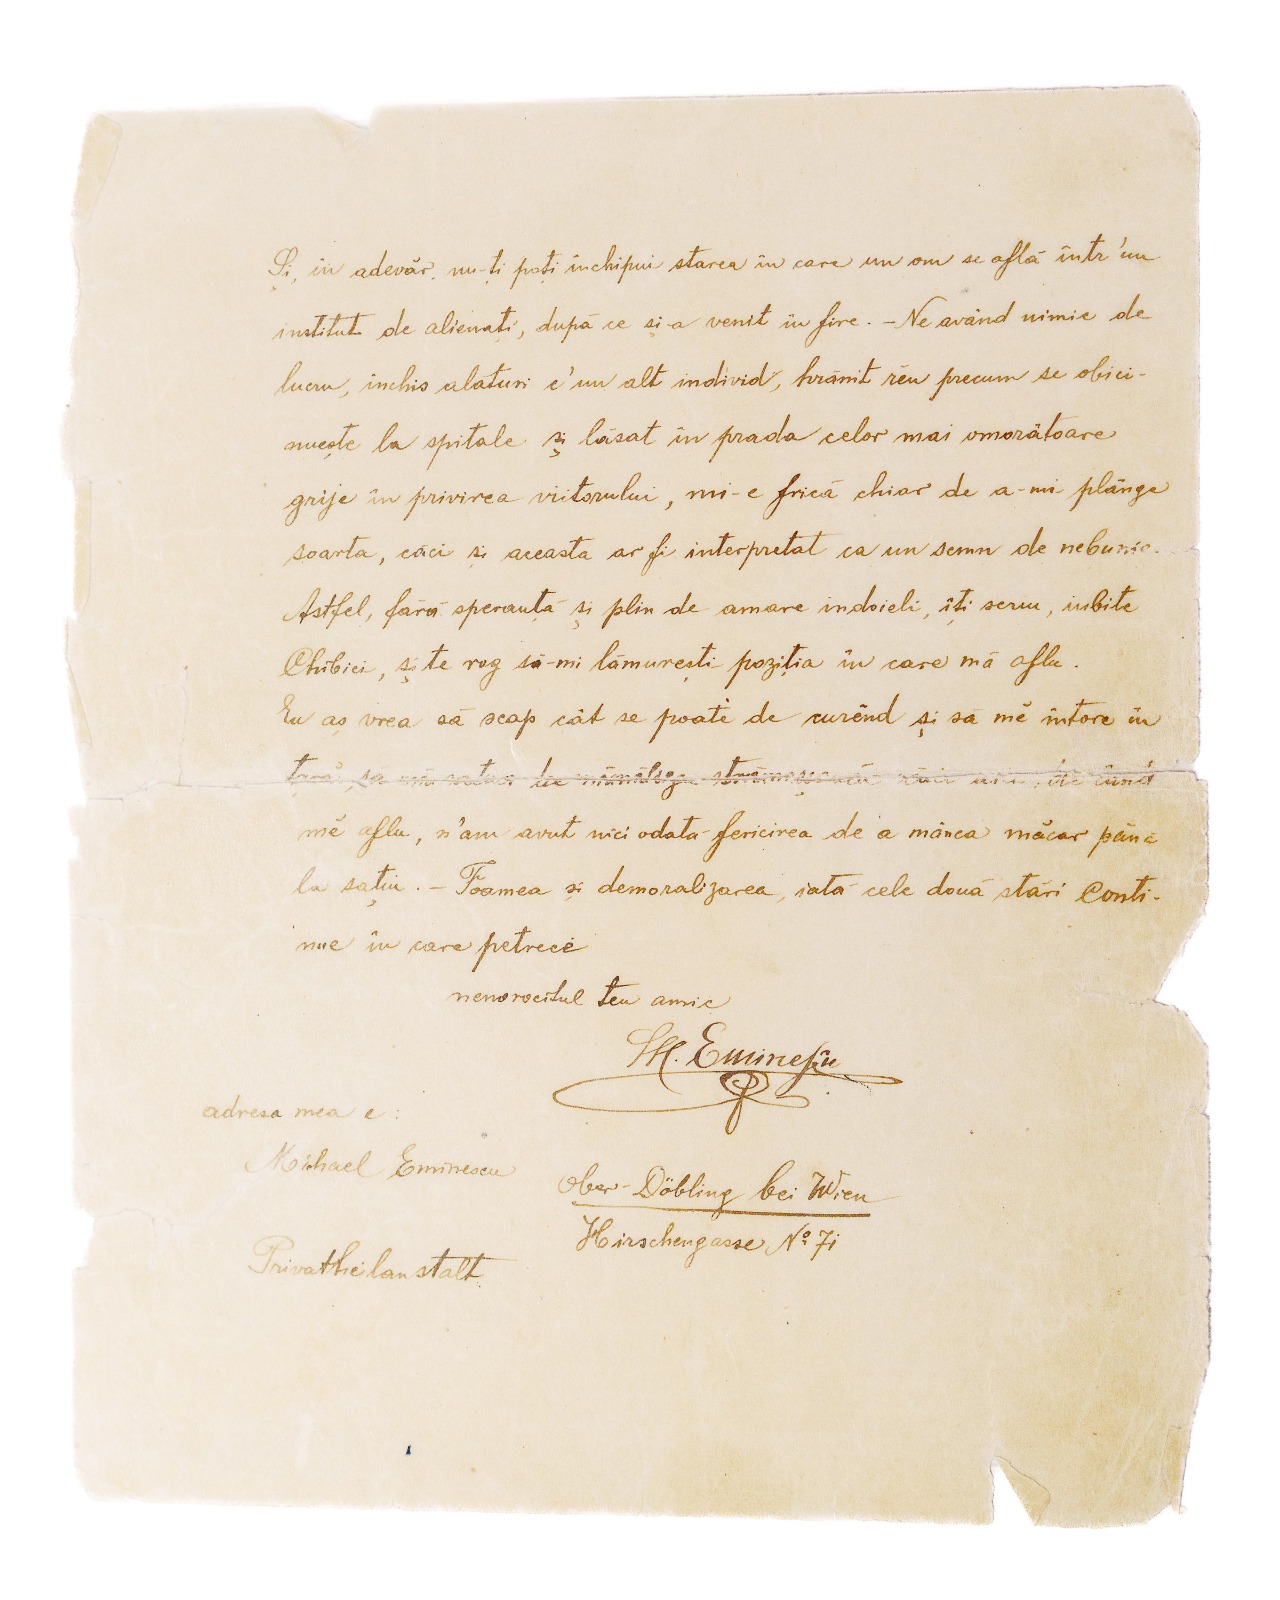 Și, în adevăr, nu-ți poți închipui starea în care un om se află într'un
institut de alienați, după ce și-a venit în fire. – Ne având nimic de
lucru, închis alături c'un alt individ, hrănit rĕu precum se obici-
nuește la spitale și lăsat în prada celor mai omorâtoare
grije în privirea viitorului, mi-e frică chiar de a-mi plânge
soarta, căci și aceasta ar fi interpretat ca un semn de nebunie.
Astfel, fără speranță și plin de amare indoieli, îți scriu, iubite
Chibici, și te rog să-mi lămurești poziția în care mă aflu.
Eu aș vrea să scap cât se poate de curênd și să mĕ întorc în
țară, să mă satur de mămăliga strămoșească căci aici, de când
mĕ aflu, n'am avut nici odată fericirea de a mânca măcar până
la sațiu. – Foamea și demoralizarea, iată cele două stări conti-
nue în care petrece
nenorocitul teu amic
M. Eminescu
adresa mea e:
Michael Eminescu
Ober-Döbling bei Wien
Hirschengasse Nº 71
Privatheilanstalt